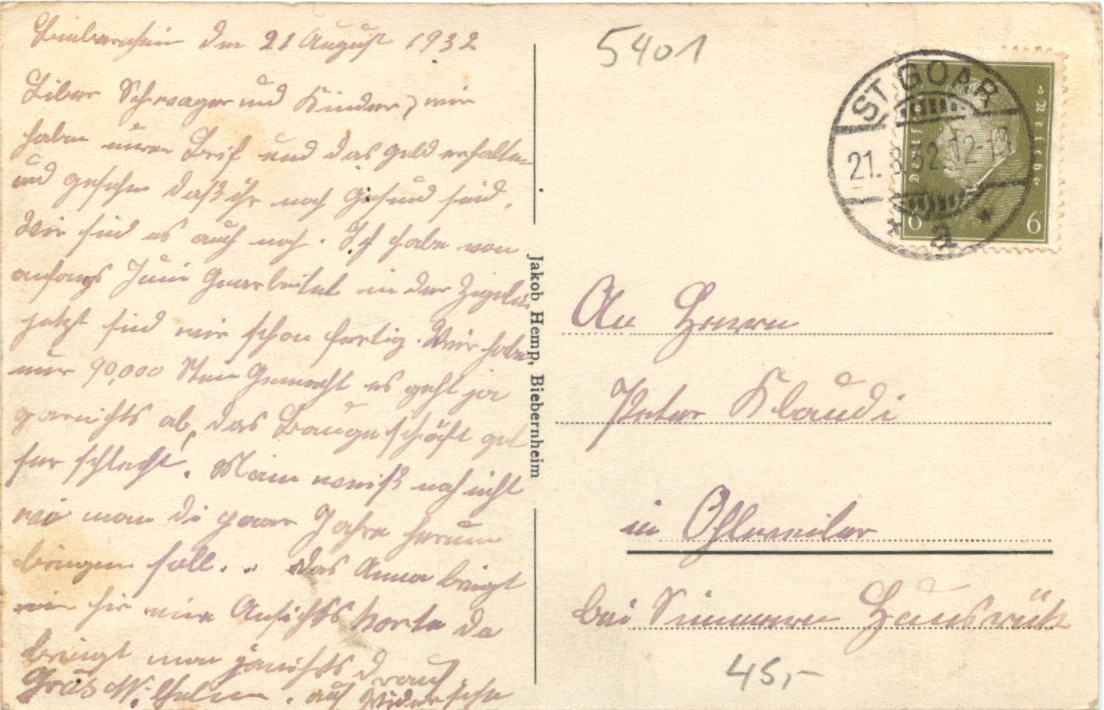 Biebernheim den 21 August 1932
Liber Schwager und Kinder, wir
haben euren Brif und das geld erhalten
und gesehen daß ihr noch Gesund seid.
Wir sind es auch noch. Ich habe von
anfangs Juni Gearbeitet in der Zigelei
jetzt sind wir schon fertig. Wir haben
nur 90,000 Stein Gemacht es geht ja
garnichts ab, das Baugeschäft get
ser schlecht. Mann weiß noch nicht
wie man di paar Jahre herum
bringen soll. . das Anna
hir eine Ansichts Karte da
bringt man ja nichts drauf
Grus Wilhelm. auf Widersehn
Jakob Hemp, Biebernheim
5401
ST. GOAR
21. 8. 32. 12-
* a *
Deutsches Reich
6 6
An Herrn
Peter Klaudi
in Ohlweiler
bei Simmern Hunsrück
45,-